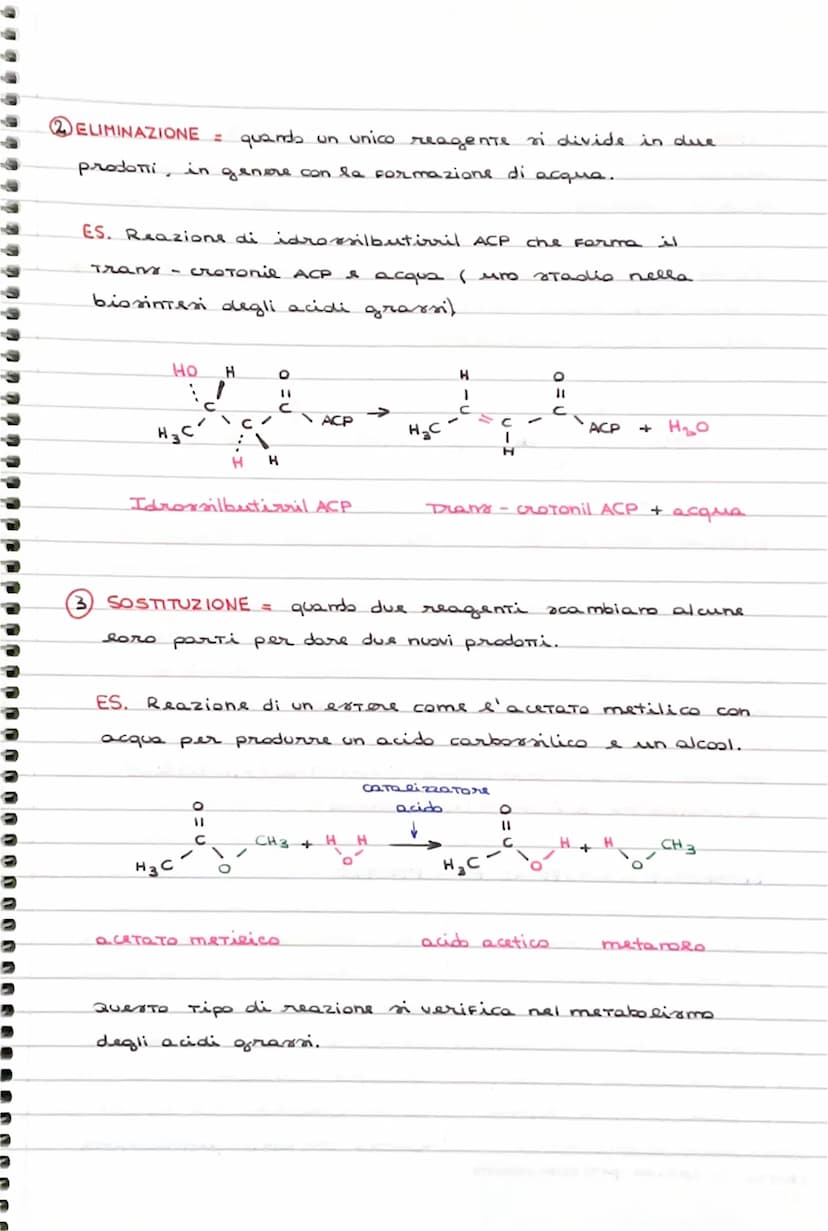 ② ELIMINAZIONE = quando un unico reagente si divide in due
prodotti, in genere con la formazione di acqua.
ES. Reazione di idrossilbutirril ACP che forma il
trans - crotonil ACP e acqua ( uno stadio nella
biosintesi degli acidi grassi)
HO H O H O
C C C ACP → C C C ACP + H₂O
H₃C H₃C
H H H
Idrossilbutirril ACP Trans - crotonil ACP + acqua
③ SOSTITUZIONE = quando due reagenti scambiano alcune
loro parti per dare due nuovi prodotti.
ES. Reazione di un estere come l'acetato metilico con
acqua per produrre un acido carbossilico e un alcool.
catalizzatore
acido
O ↓ O
C CH₃ + H H → C H + H CH₃
H₃C O O H₃C O O
acetato metilico acido acetico metanolo
Questo tipo di reazione si verifica nel metabolismo
degli acidi grassi.